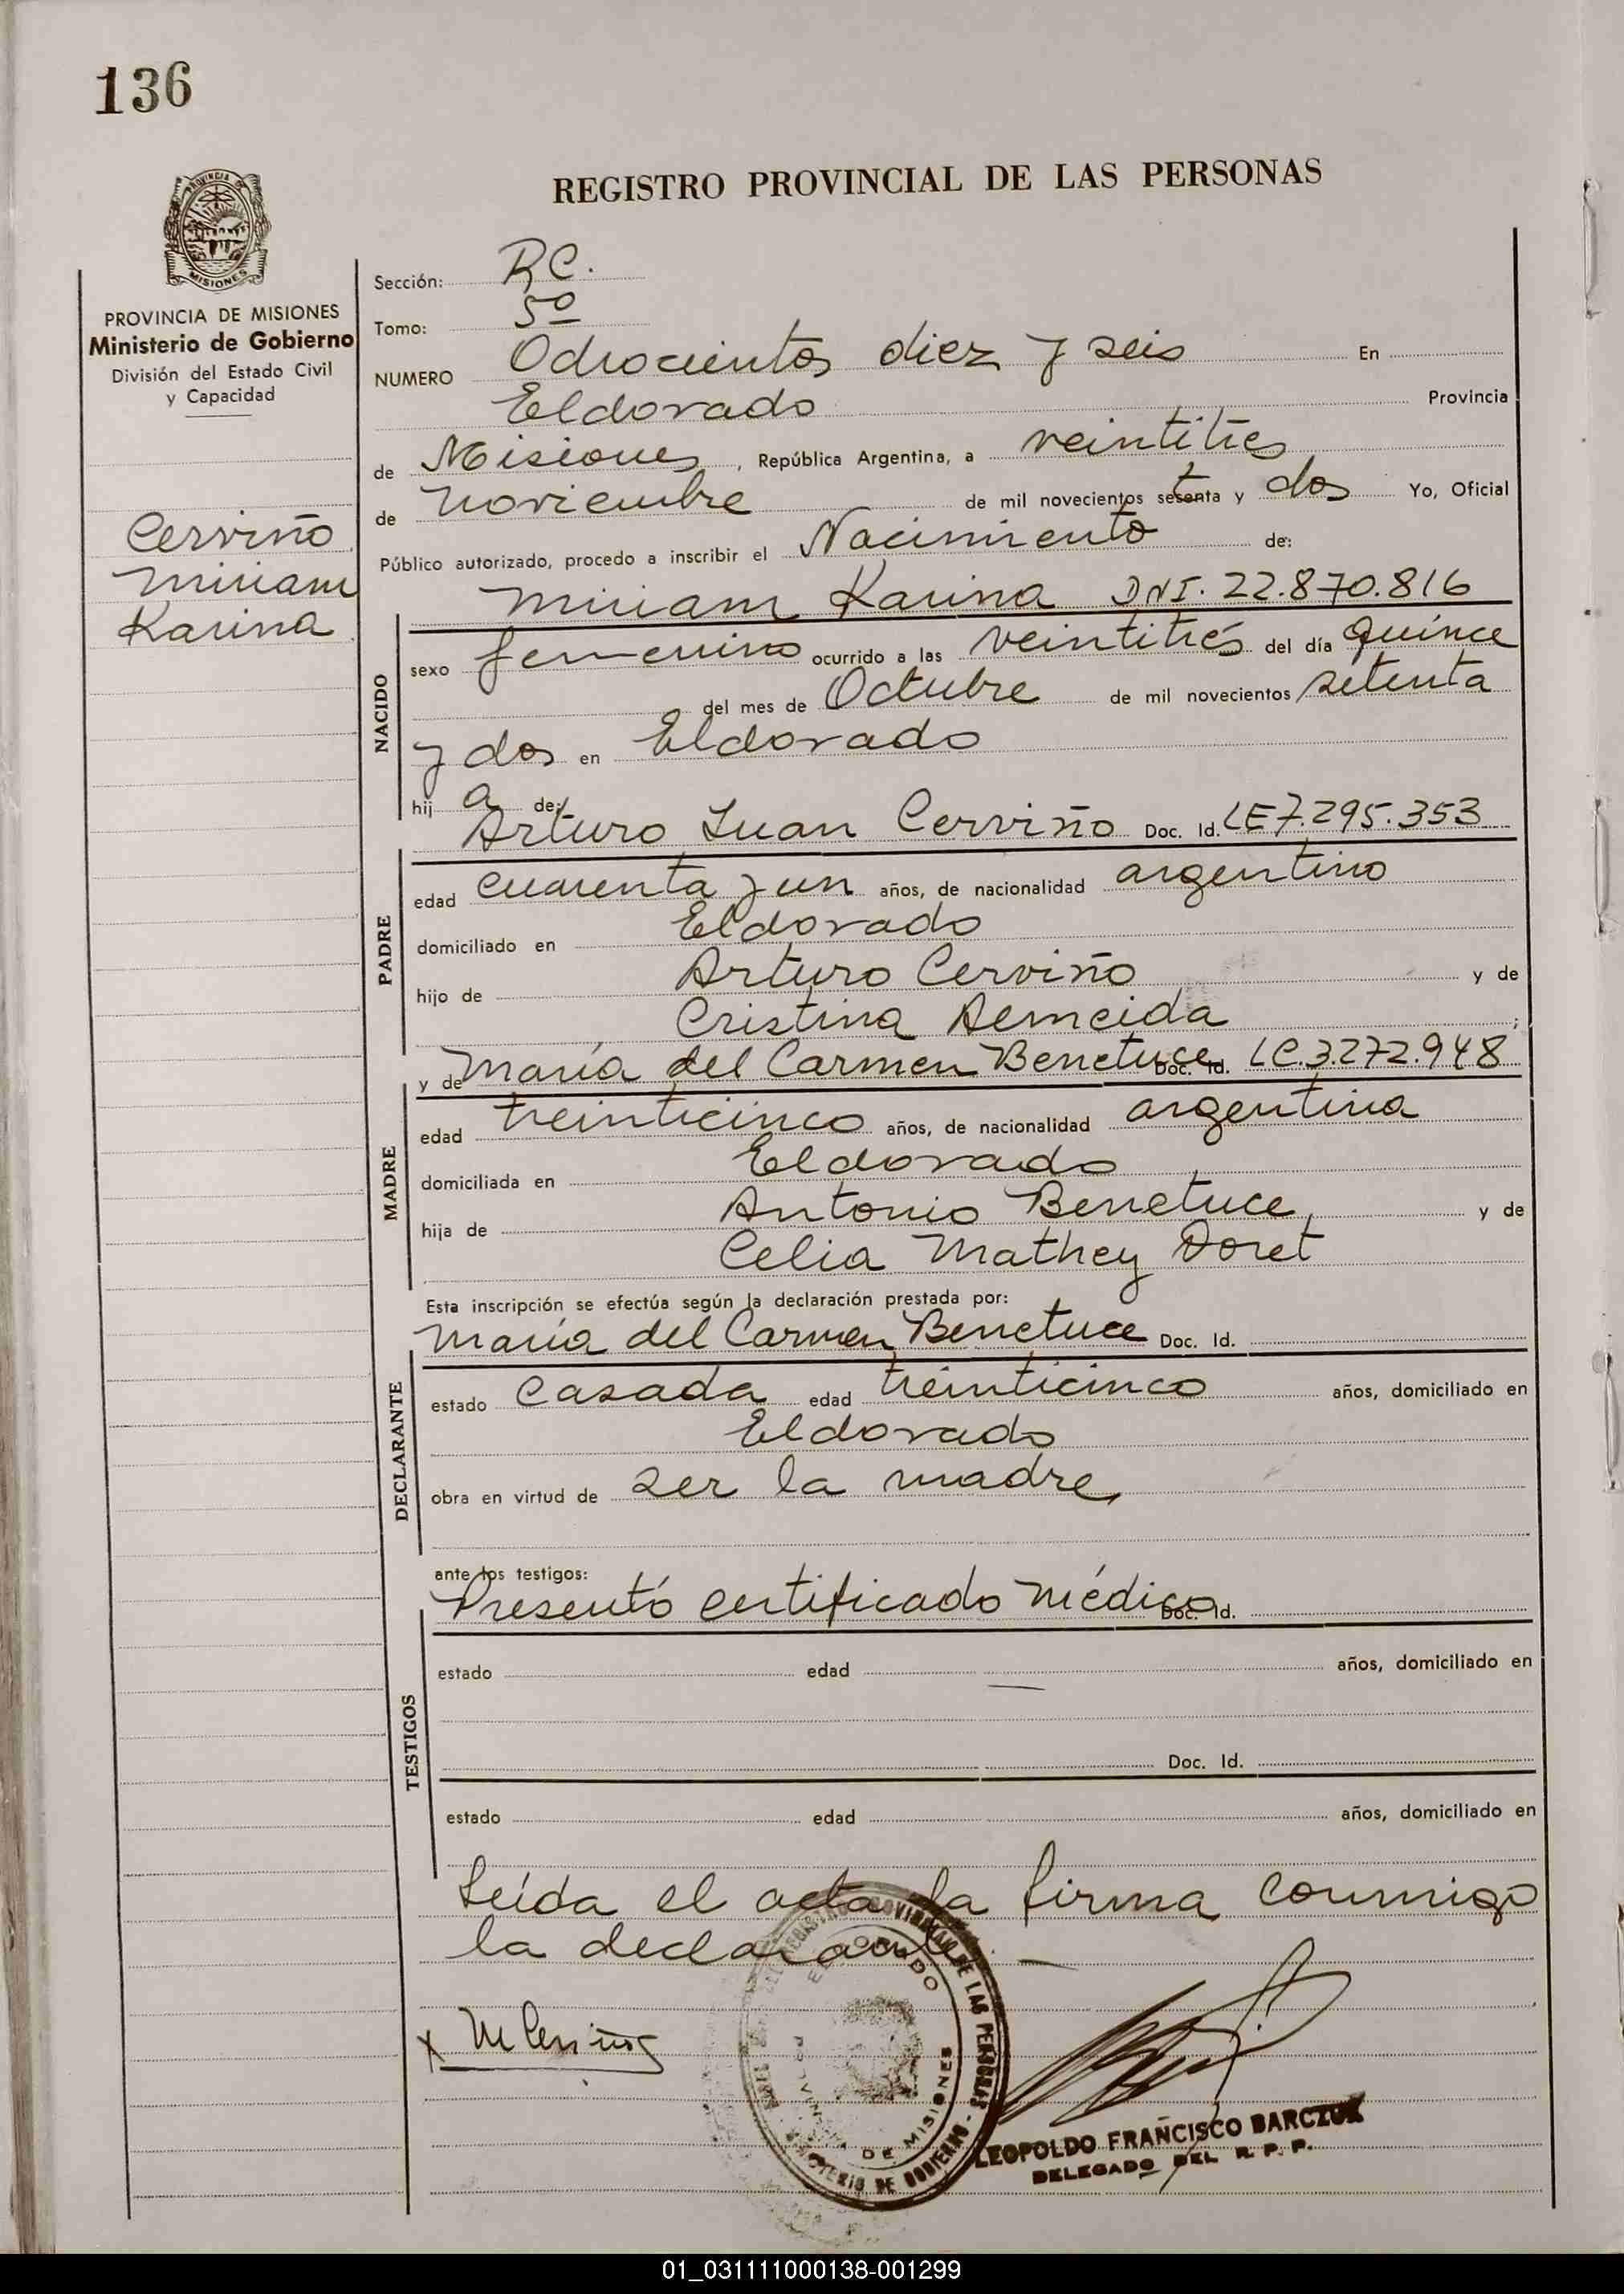 136
PROVINCIA DE
MISIONES
PROVINCIA DE MISIONES
Ministerio de Gobierno
División del Estado Civil
y Capacidad
Cerviño
Miriam
Karina
REGISTRO PROVINCIAL DE LAS PERSONAS
Sección: RC.
Tomo: 5º
NUMERO Ochocientos diez y seis En
Eldorado Provincia
de Misiones, República Argentina, a veintitres
de noviembre de mil novecientos setenta y dos Yo, Oficial
Público autorizado, procedo a inscribir el Nacimiento de:
Miriam Karina DNI. 22.870.816
NACIDO
sexo femenino ocurrido a las veintitrés del día quince
del mes de Octubre de mil novecientos setenta
y dos en Eldorado
hij a de:
Arturo Juan Cerviño Doc. Id. LE 7.295.353
PADRE
edad cuarenta y un años, de nacionalidad argentino
domiciliado en Eldorado
hijo de Arturo Cerviño y de
Cristina Almeida ;
y de María del Carmen Benetuce Doc. Id. LC. 3.272.948
MADRE
edad treinticinco años, de nacionalidad argentina
domiciliada en Eldorado
hija de Antonio Benetuce y de
Celia Mathey Doret
Esta inscripción se efectúa según la declaración prestada por:
María del Carmen Benetuce Doc. Id.
DECLARANTE
estado casada edad treinticinco años, domiciliado en
Eldorado
obra en virtud de ser la madre
ante los testigos:
Presentó certificado médico Doc. Id.
TESTIGOS
estado edad años, domiciliado en
Doc. Id.
estado edad años, domiciliado en
Leída el acta la firma conmigo
la declarante.
x M Cerviño
REGISTRO PROVINCIAL DE LAS PERSONAS
MINISTERIO DE GOBIERNO
ELDORADO
PROVINCIA DE MISIONES
LEOPOLDO FRANCISCO BARCZUK
DELEGADO DEL R. P. P.
01_031111000138-001299